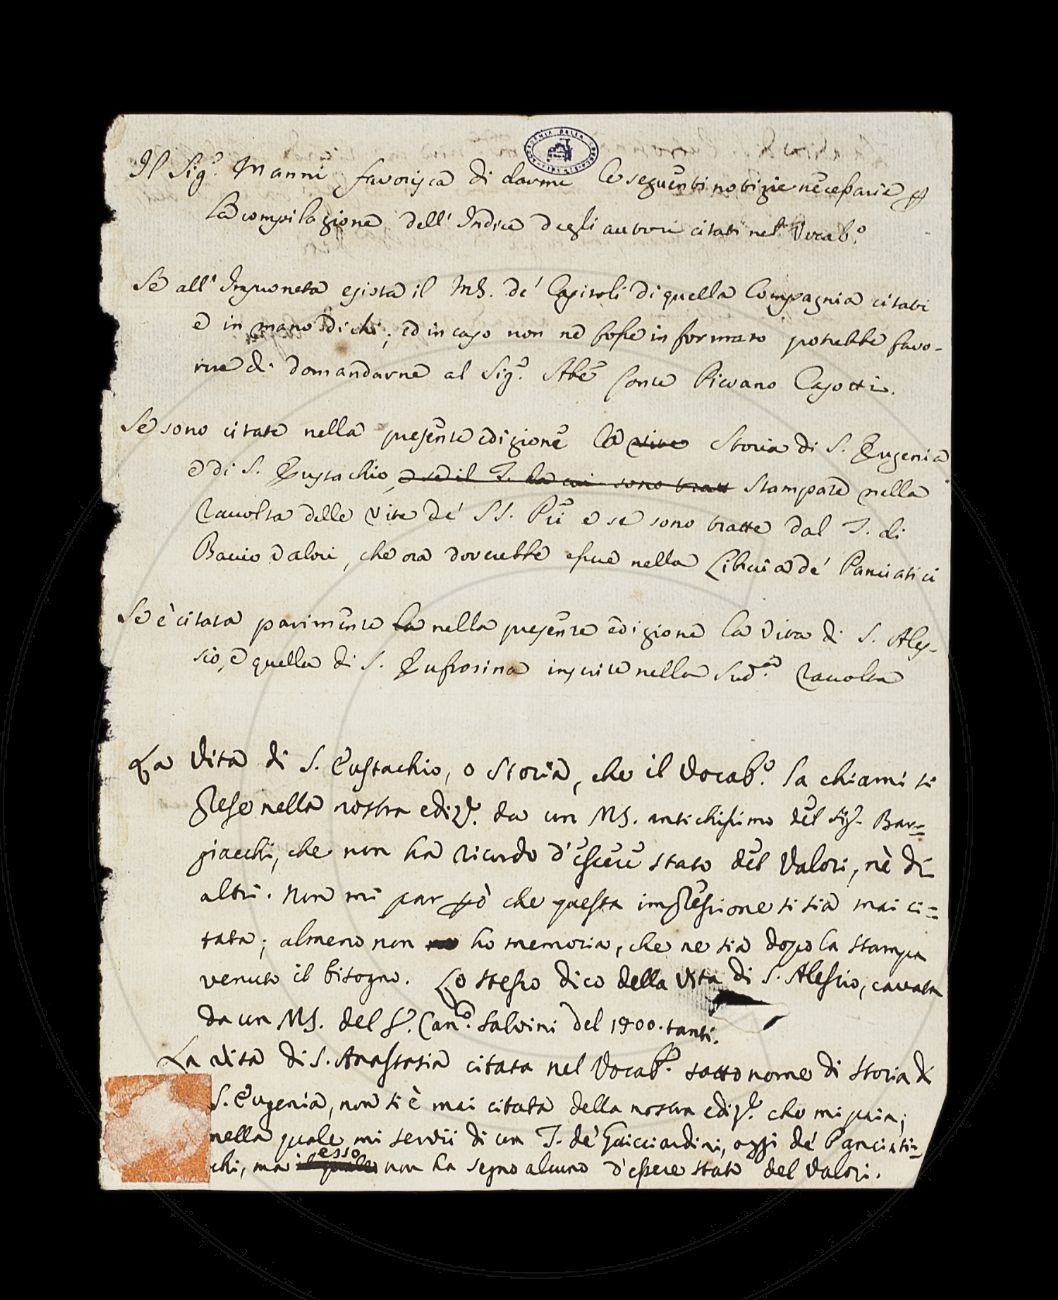 Il Sig.r Manni favorisca di darmi le seguenti notizie necessarie p
la compilazione dell' Indice degli autori citati nel Vocab.o
Se all' Impruneta esista il MS. de' Capitoli di quella Compagnia citati
e in mano di chi; ed in caso non ne fosse informato potrebbe favo-
rire di domandarne al Sig.r Abe Conte Pievano Casotti.
Se sono citate nella presente edizione le vite Storia di S. Eugenia
e di S. Eustachio, e se il T. da cui sono tratt Stampate nella
raccolta delle Vite de' SS. PP. e se sono tratte dal T. di
Baccio Valori, che ora dovrebbe essere nella Libreria de' Panciatici
Se è citata parimente la nella presente edizione la Vita di S. Ales-
sio, e quella di S. Eufrosina inserite nella Sud.a raccolta
La Vita di S. Eustachio, o Storia, che il Vocab.o la chiami si
prese nella nostra ediz.e da un MS. antichissimo del Sig.r Bar=
giacchi, che non ha ricordo d'essere stato del Valori, nè di
altri. Non mi par pò che questa impressione si sia mai ci=
tata; almeno non ho memoria, che ne sia dopo la stampa
venuto il bisogno. Lo stesso dico della Vita di S. Alessio, cavata
da un MS. del S.r Can.o Salvini del 1400. tanti.
La vita di S. Anastasia citata nel Vocab.o sotto nome di Storia di
S. Eugenia, non si è mai citata della nostra ediz.e che mi paia;
nella quale mi servii di un T. de' Guicciardini, oggi de' Panciati=
chi, ma il quale esso non ha segno alcuno d'essere stato del Valori.